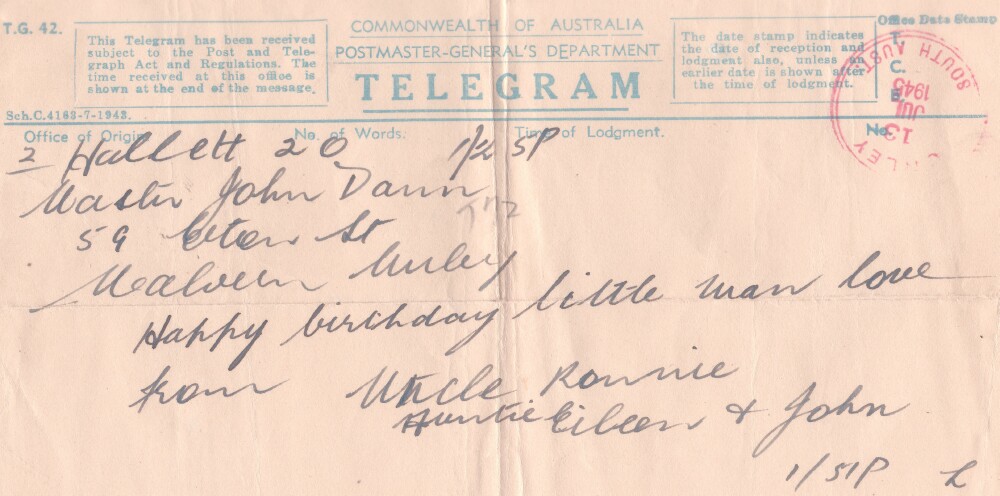 T.G. 42.
This Telegram has been received
subject to the Post and Tele-
graph Act and Regulations. The
time received at this office is
shown at the end of the message.
COMMONWEALTH OF AUSTRALIA
POSTMASTER-GENERAL'S DEPARTMENT
TELEGRAM
The date stamp indicates
the date of reception and
lodgment also, unless an
earlier date is shown after
the time of lodgment.
Office Date Stamp
13
JUL
1945
SOUTH AUST
Sch.C.4163-7-1943.
Office of Origin. No. of Words. Time of Lodgment. No.
2 Hallett 20 1/25P
Master John Dann
59 Eton St
Malvern Unley
Happy birthday little man love
from Uncle Ronnie
Auntie Eileen & John
1/51P L